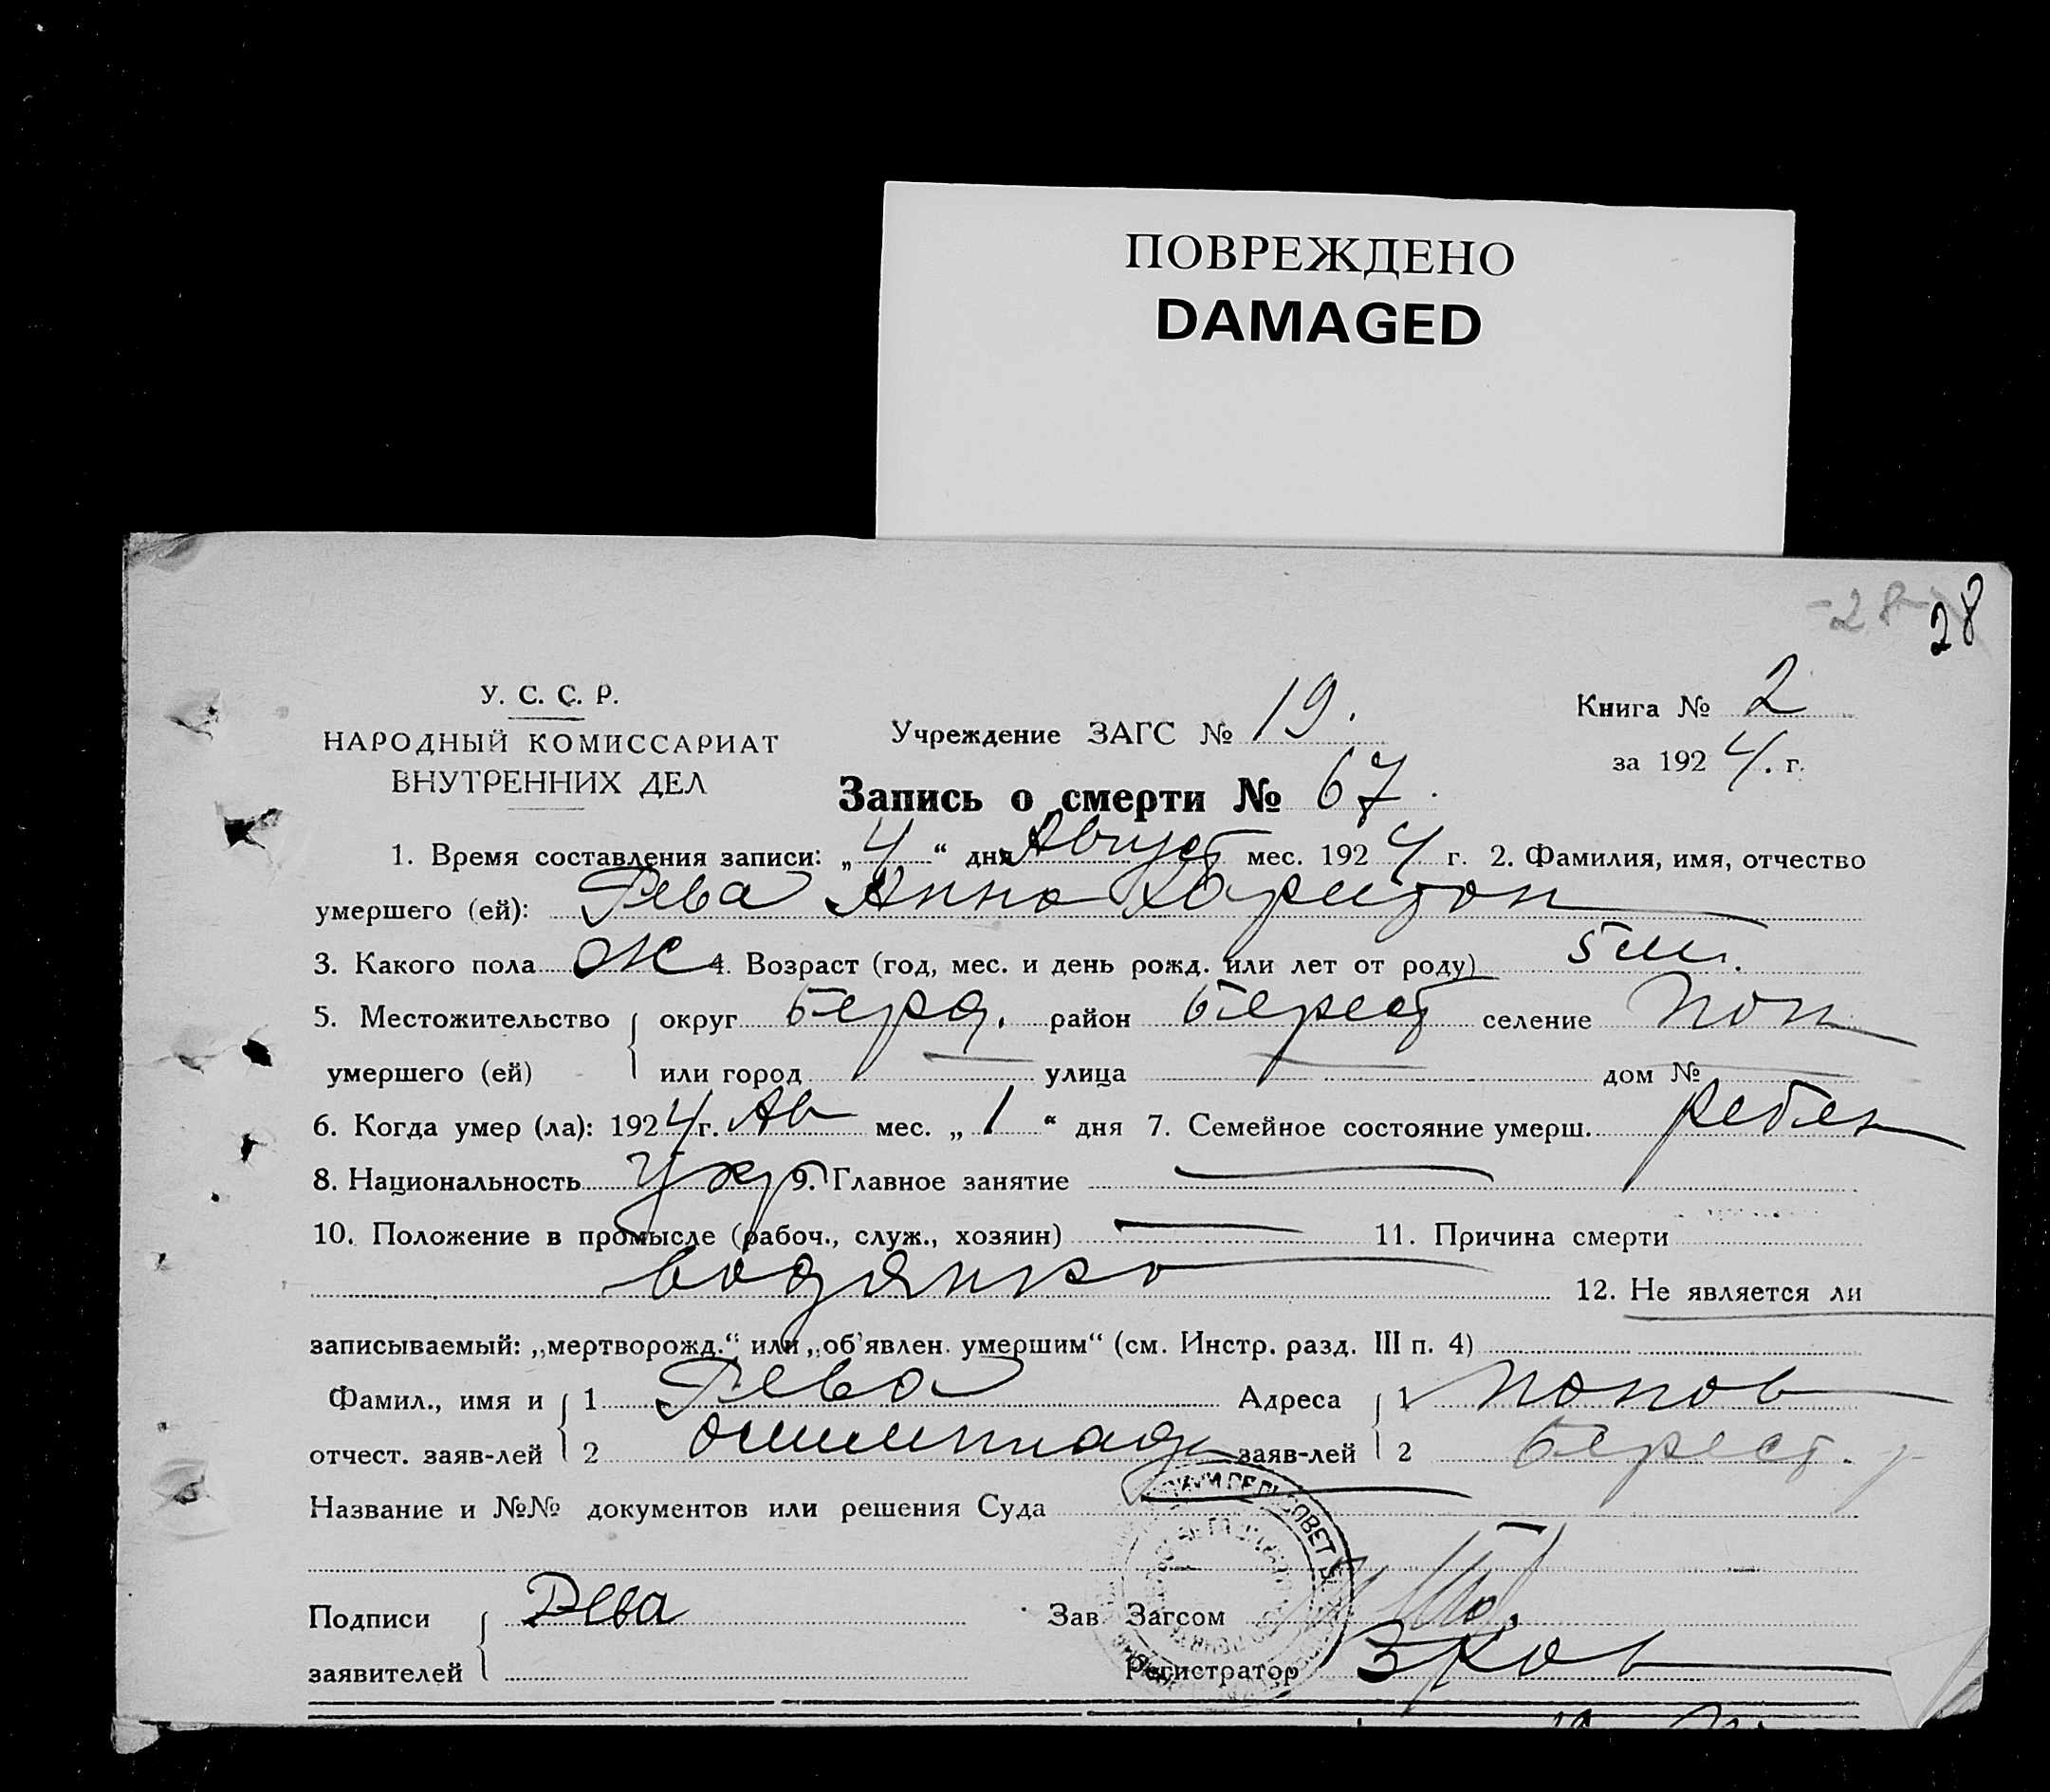 ПОВРЕЖДЕНО
DAMAGED
-28- 28
У. С. С. Р.
НАРОДНЫЙ КОМИССАРИАТ
ВНУТРЕННИХ ДЕЛ
Учреждение ЗАГС № 19.
Книга № 2
за 1924. г.
Запись о смерти № 67.
1. Время составления записи: „4“ дня Август мес. 1924 г. 2. Фамилия, имя, отчество
умершего (ей): Рева Анна Харитон
3. Какого пола ж 4. Возраст (год, мес. и день рожд. или лет от роду) 5 м.
5. Местожительство округ Берд. район Берест селение Поп
умершего (ей) или город — улица — дом № —
6. Когда умер (ла): 1924 г. Ав мес. „1“ дня 7. Семейное состояние умерш. ребен
8. Национальность Укр 9. Главное занятие —
10. Положение в промысле (рабоч., служ., хозяин) — 11. Причина смерти
водянка 12. Не является ли
записываемый: „мертворожд.“ или „об'явлен. умершим“ (см. Инстр. разд. III п. 4)
Фамил., имя и 1 Рева Адреса 1 Попов
отчест. заяв-лей 2 заяв-лей 2 Берест. р
Название и №№ документов или решения Суда
Подписи Рева Зав. Загсом
заявителей Регистратор